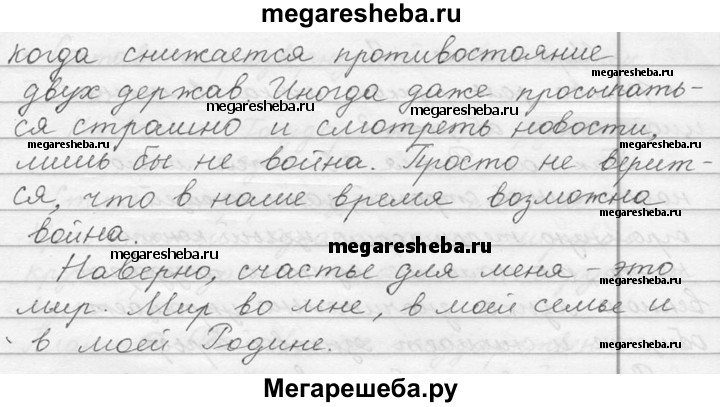 megaresheba.ru
когда снижается противостояние
megaresheba.ru
двух держав Иногда даже просыпать-
megaresheba.ru
megaresheba.ru
ся страшно и смотреть новости,
megaresheba.ru
лишь бы не война. Просто не верит-
megaresheba.ru
ся, что в наше время возможна
megaresheba.ru
война.
megaresheba.ru
megaresheba.ru
Наверно, счастье для меня – это
megaresheba.ru
мир. Мир во мне, в моей семье и
в моей Родине.
megaresheba.ru
Мегарешеба.ру